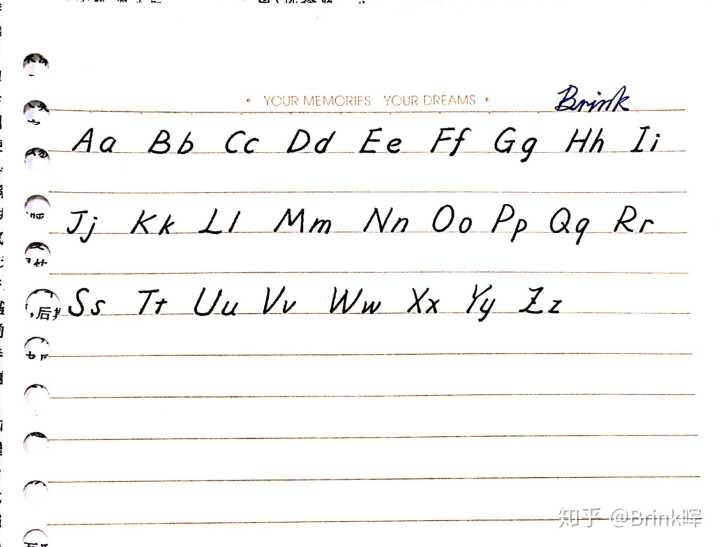 • YOUR MEMORIES YOUR DREAMS •
Brink
Aa Bb Cc Dd Ee Ff Gg Hh Ii
Jj Kk Ll Mm Nn Oo Pp Qq Rr
Ss Tt Uu Vv Ww Xx Yy Zz
后
知乎 @Brink晖